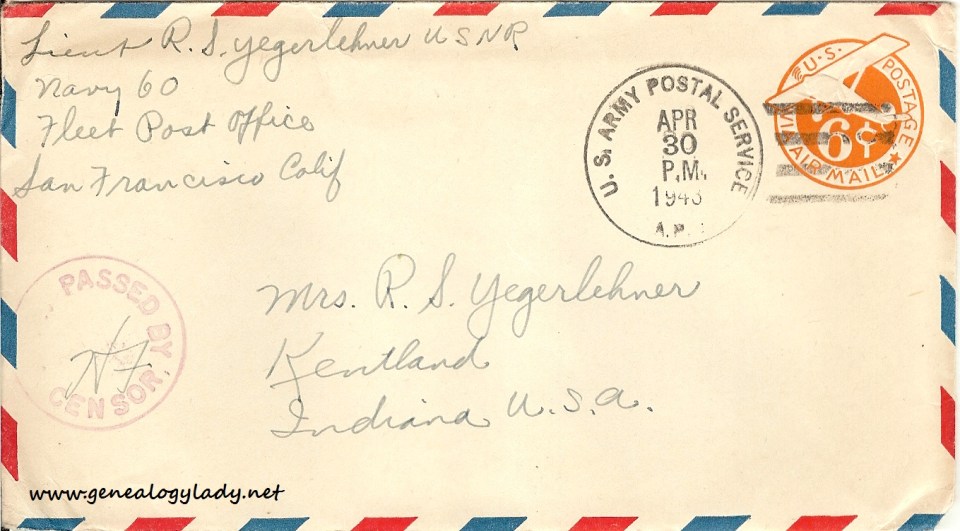 Lieut R. S. Yegerlehner USNR
Navy 60
Fleet Post Office
San Francisco Calif
U. S. ARMY POSTAL SERVICE
APR
30
P.M.
1943
A.P.
U.S. POSTAGE
6¢
VIA AIR MAIL
PASSED BY
CENSOR
Mrs. R. S. Yegerlehner
Kentland
Indiana U.S.A.
www.genealogylady.net